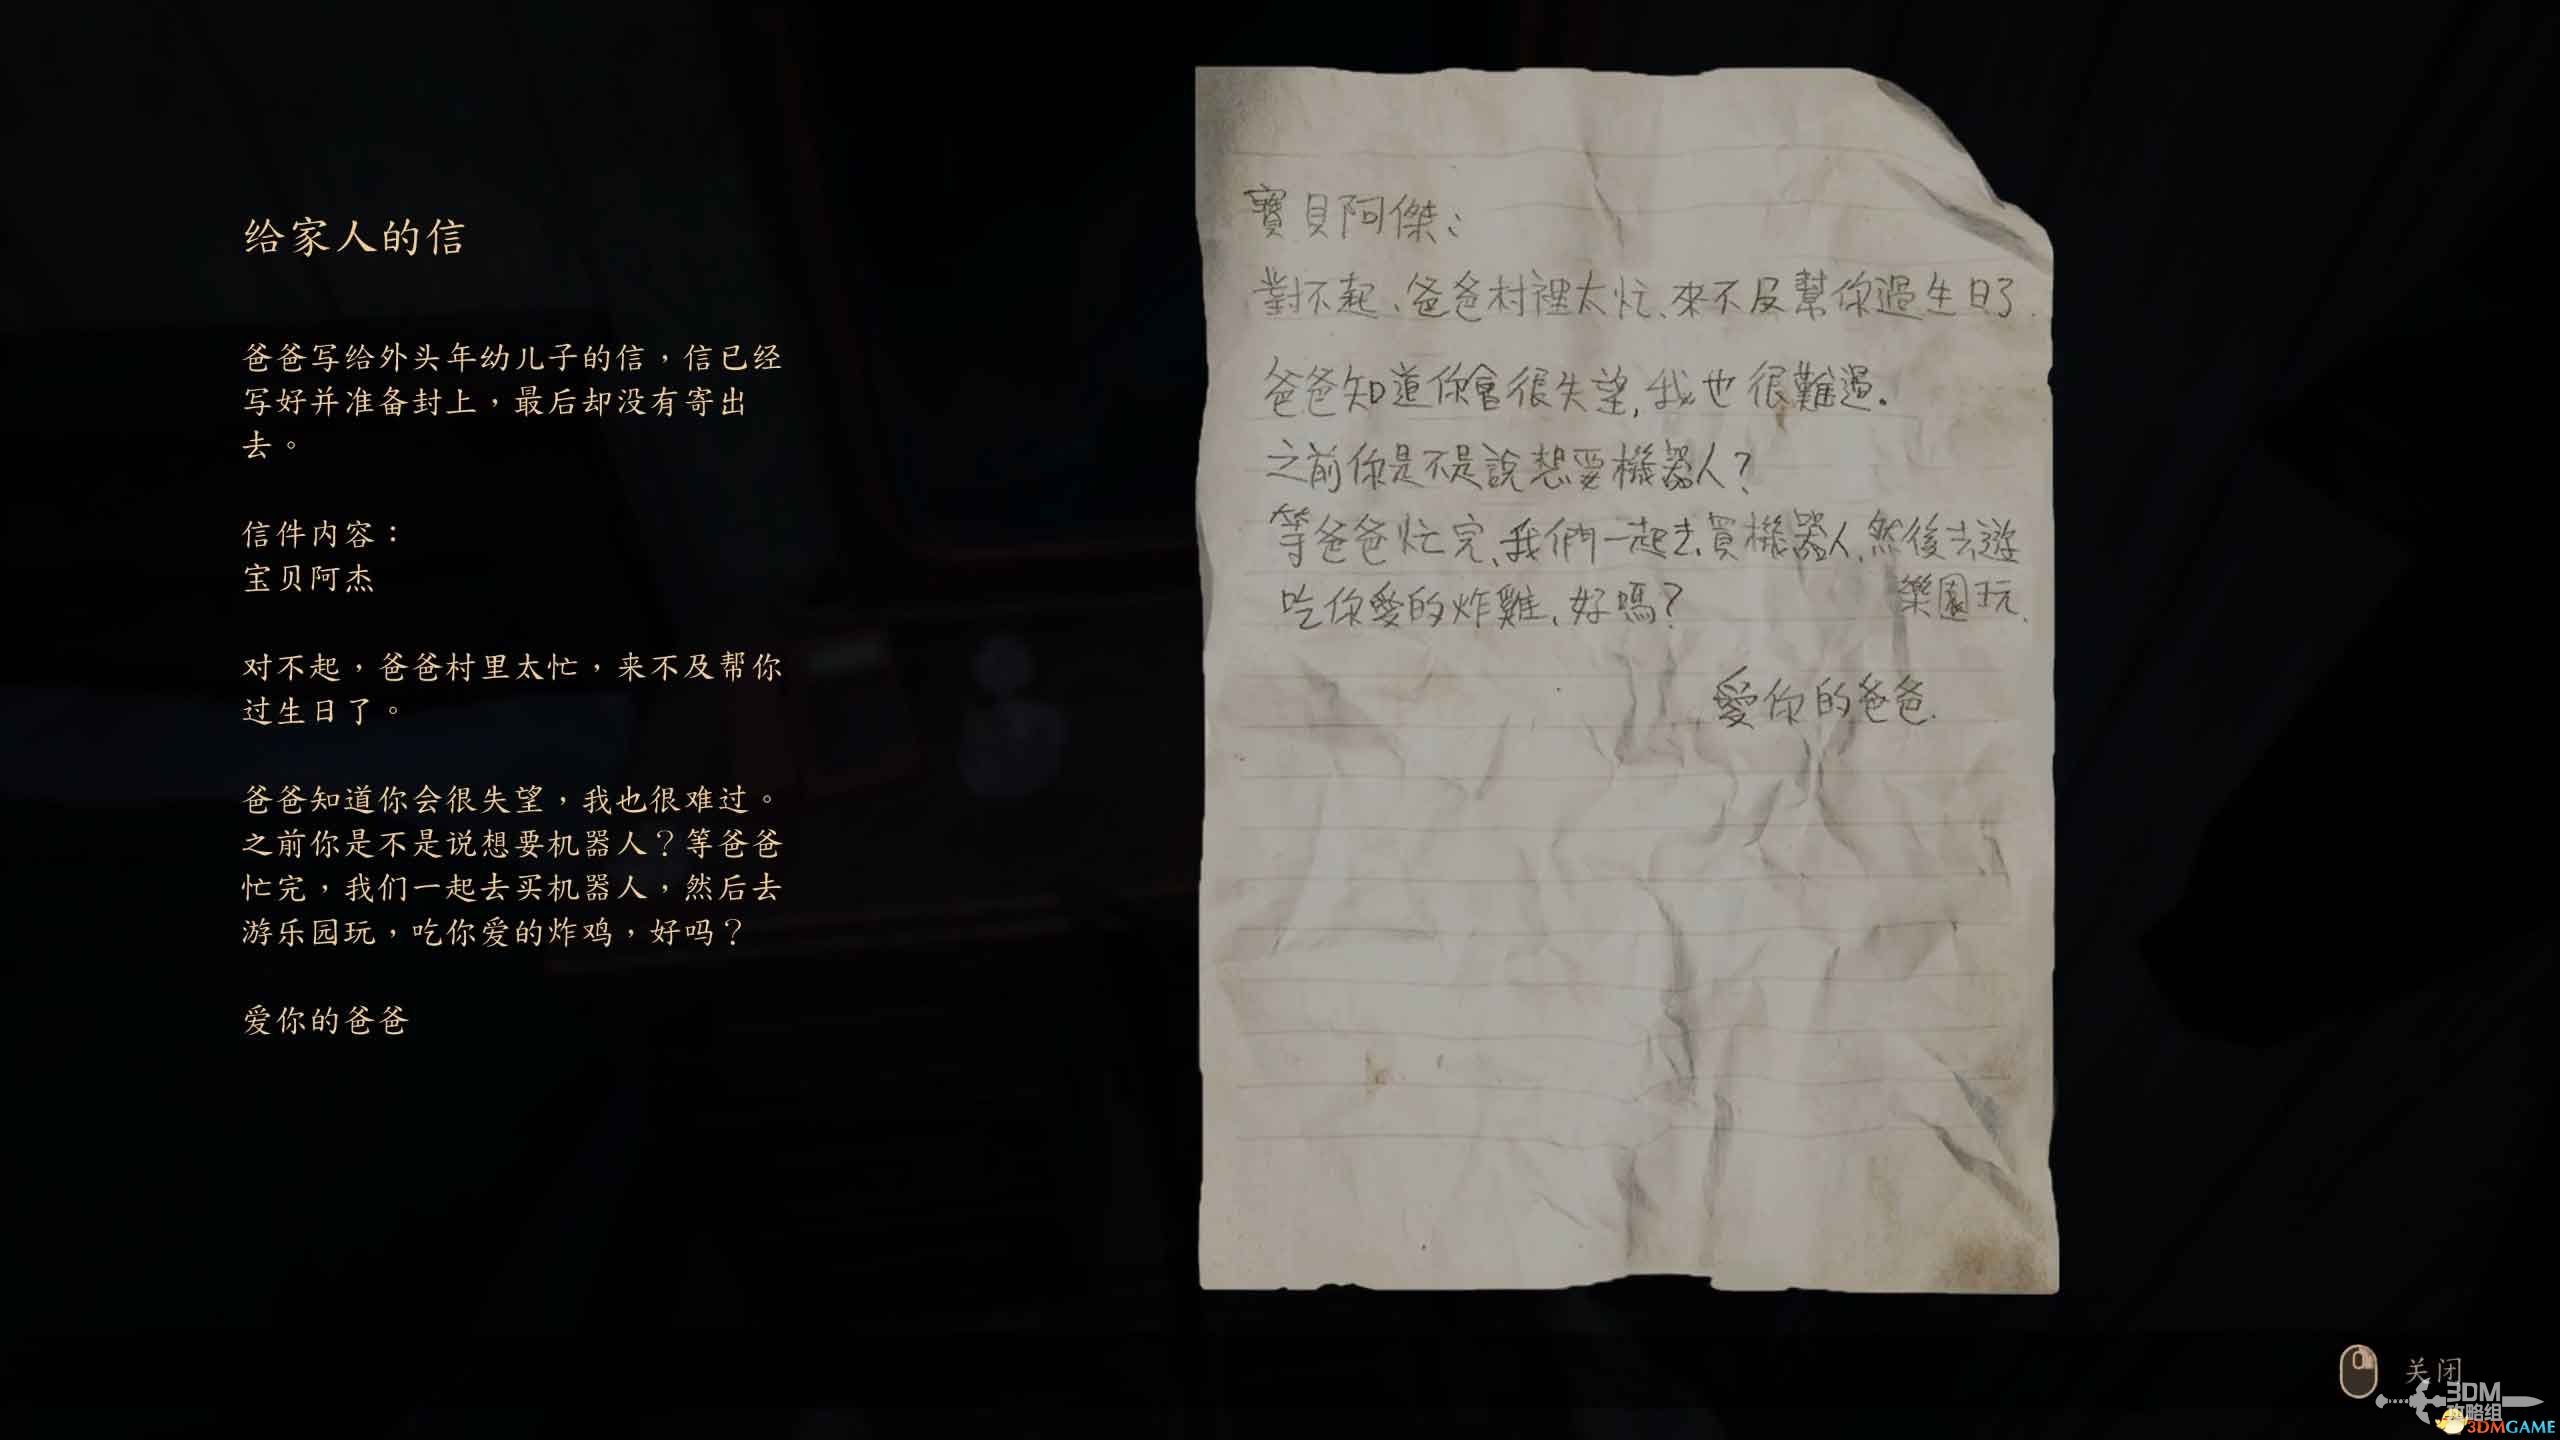 给家人的信
爸爸写给外头年幼儿子的信，信已经
写好并准备封上，最后却没有寄出
去。
信件内容：
宝贝阿杰
对不起，爸爸村里太忙，来不及帮你
过生日了。
爸爸知道你会很失望，我也很难过。
之前你是不是说想要机器人？等爸爸
忙完，我们一起去买机器人，然后去
游乐园玩，吃你爱的炸鸡，好吗？
爱你的爸爸
寶貝阿傑：
對不起、爸爸村裡太忙、來不及幫你過生日了.
爸爸知道你會很失望，我也很難過。
之前你是不是說想要機器人？
等爸爸忙完、我們一起去買機器人、然後去遊
樂園玩.
吃你愛的炸雞、好嗎？
愛你的爸爸.
关闭
3DM
攻略组
3DMGAME